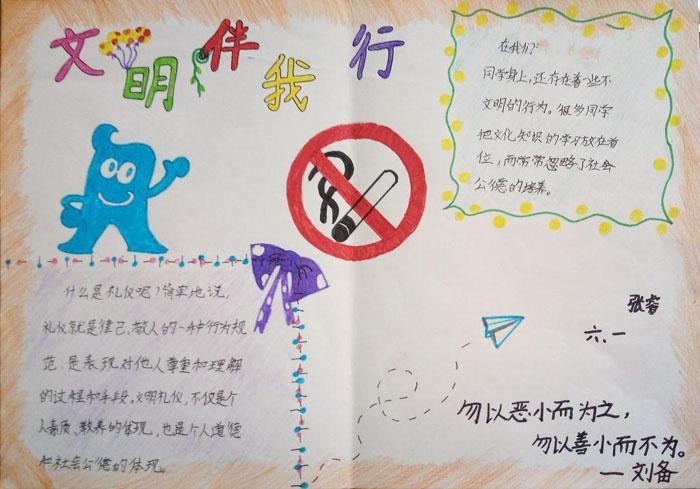 文明伴我行
在我们
同学身上,还存在着一些不
文明的行为。很多同学
把文化知识的学习放在首
位,而常常忽略了社会
公德的培养。
什么是礼仪呢?简单地说,
礼仪就是律己、敬人的一种行为规
范,是表现对他人尊重和理解
的过程和手段。文明礼仪,不仅是个
人素质、教养的体现,也是个人道德
和社会公德的体现。
张睿
六.一
勿以恶小而为之,
勿以善小而不为。
—刘备